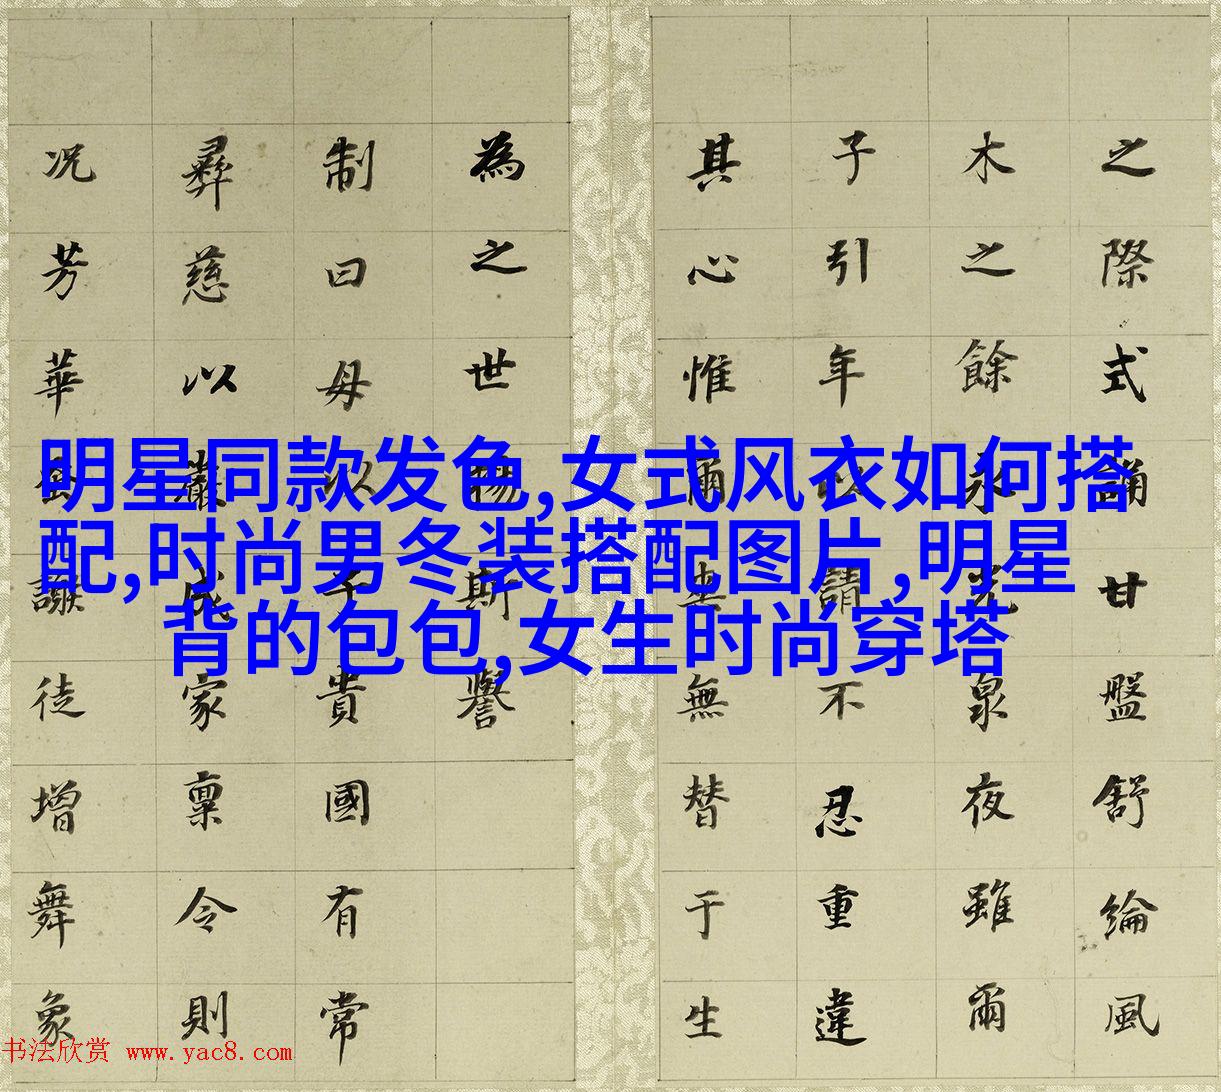 明星同款发色,女式风衣如何搭
配,时尚男冬装搭配图片,明星
背的包包,女生时尚穿塔
之際式誦甘盤舒綸風
木之餘永泉夜雖爾
子引年以請不忍重違
其心惟爾無替于生
為之世揚斯譽
制曰母以子貴國有常
彝慈以嚴成家稟令則
况芳華謝徒增舞象
书法欣赏 www.yac8.com